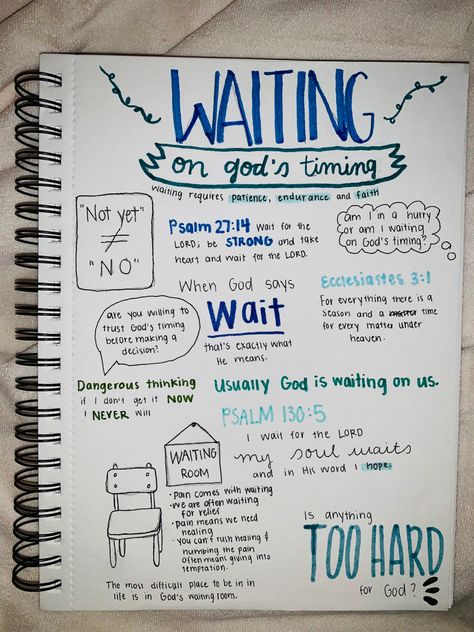 WAITING
on god's timing
Waiting requires patience, endurance and faith
"Not yet"
≠
"NO"
Psalm 27:14 Wait for the
LORD; be STRONG and take
heart and wait for the LORD.
am I in a hurry
or am I waiting
on God's timing?
When God says
Wait
that's exactly what
He means.
Ecclesiastes 3:1
For everything there is a
season and a time
for every matter under
heaven.
are you willing to
trust God's timing
before making a
decision?
Dangerous thinking
if I don't get it NOW
I NEVER will
Usually God is waiting on us.
PSALM 130:5
I wait for the LORD
my soul waits
and in His word I hope.
WAITING
ROOM
• Pain comes with waiting
• We are often waiting
for relief
• Pain means we need
healing
• You can't rush healing &
numbing the pain
often means giving into
temptation.
The most difficult place to be in in
life is in God's waiting room.
Is anything
TOO HARD
for God?